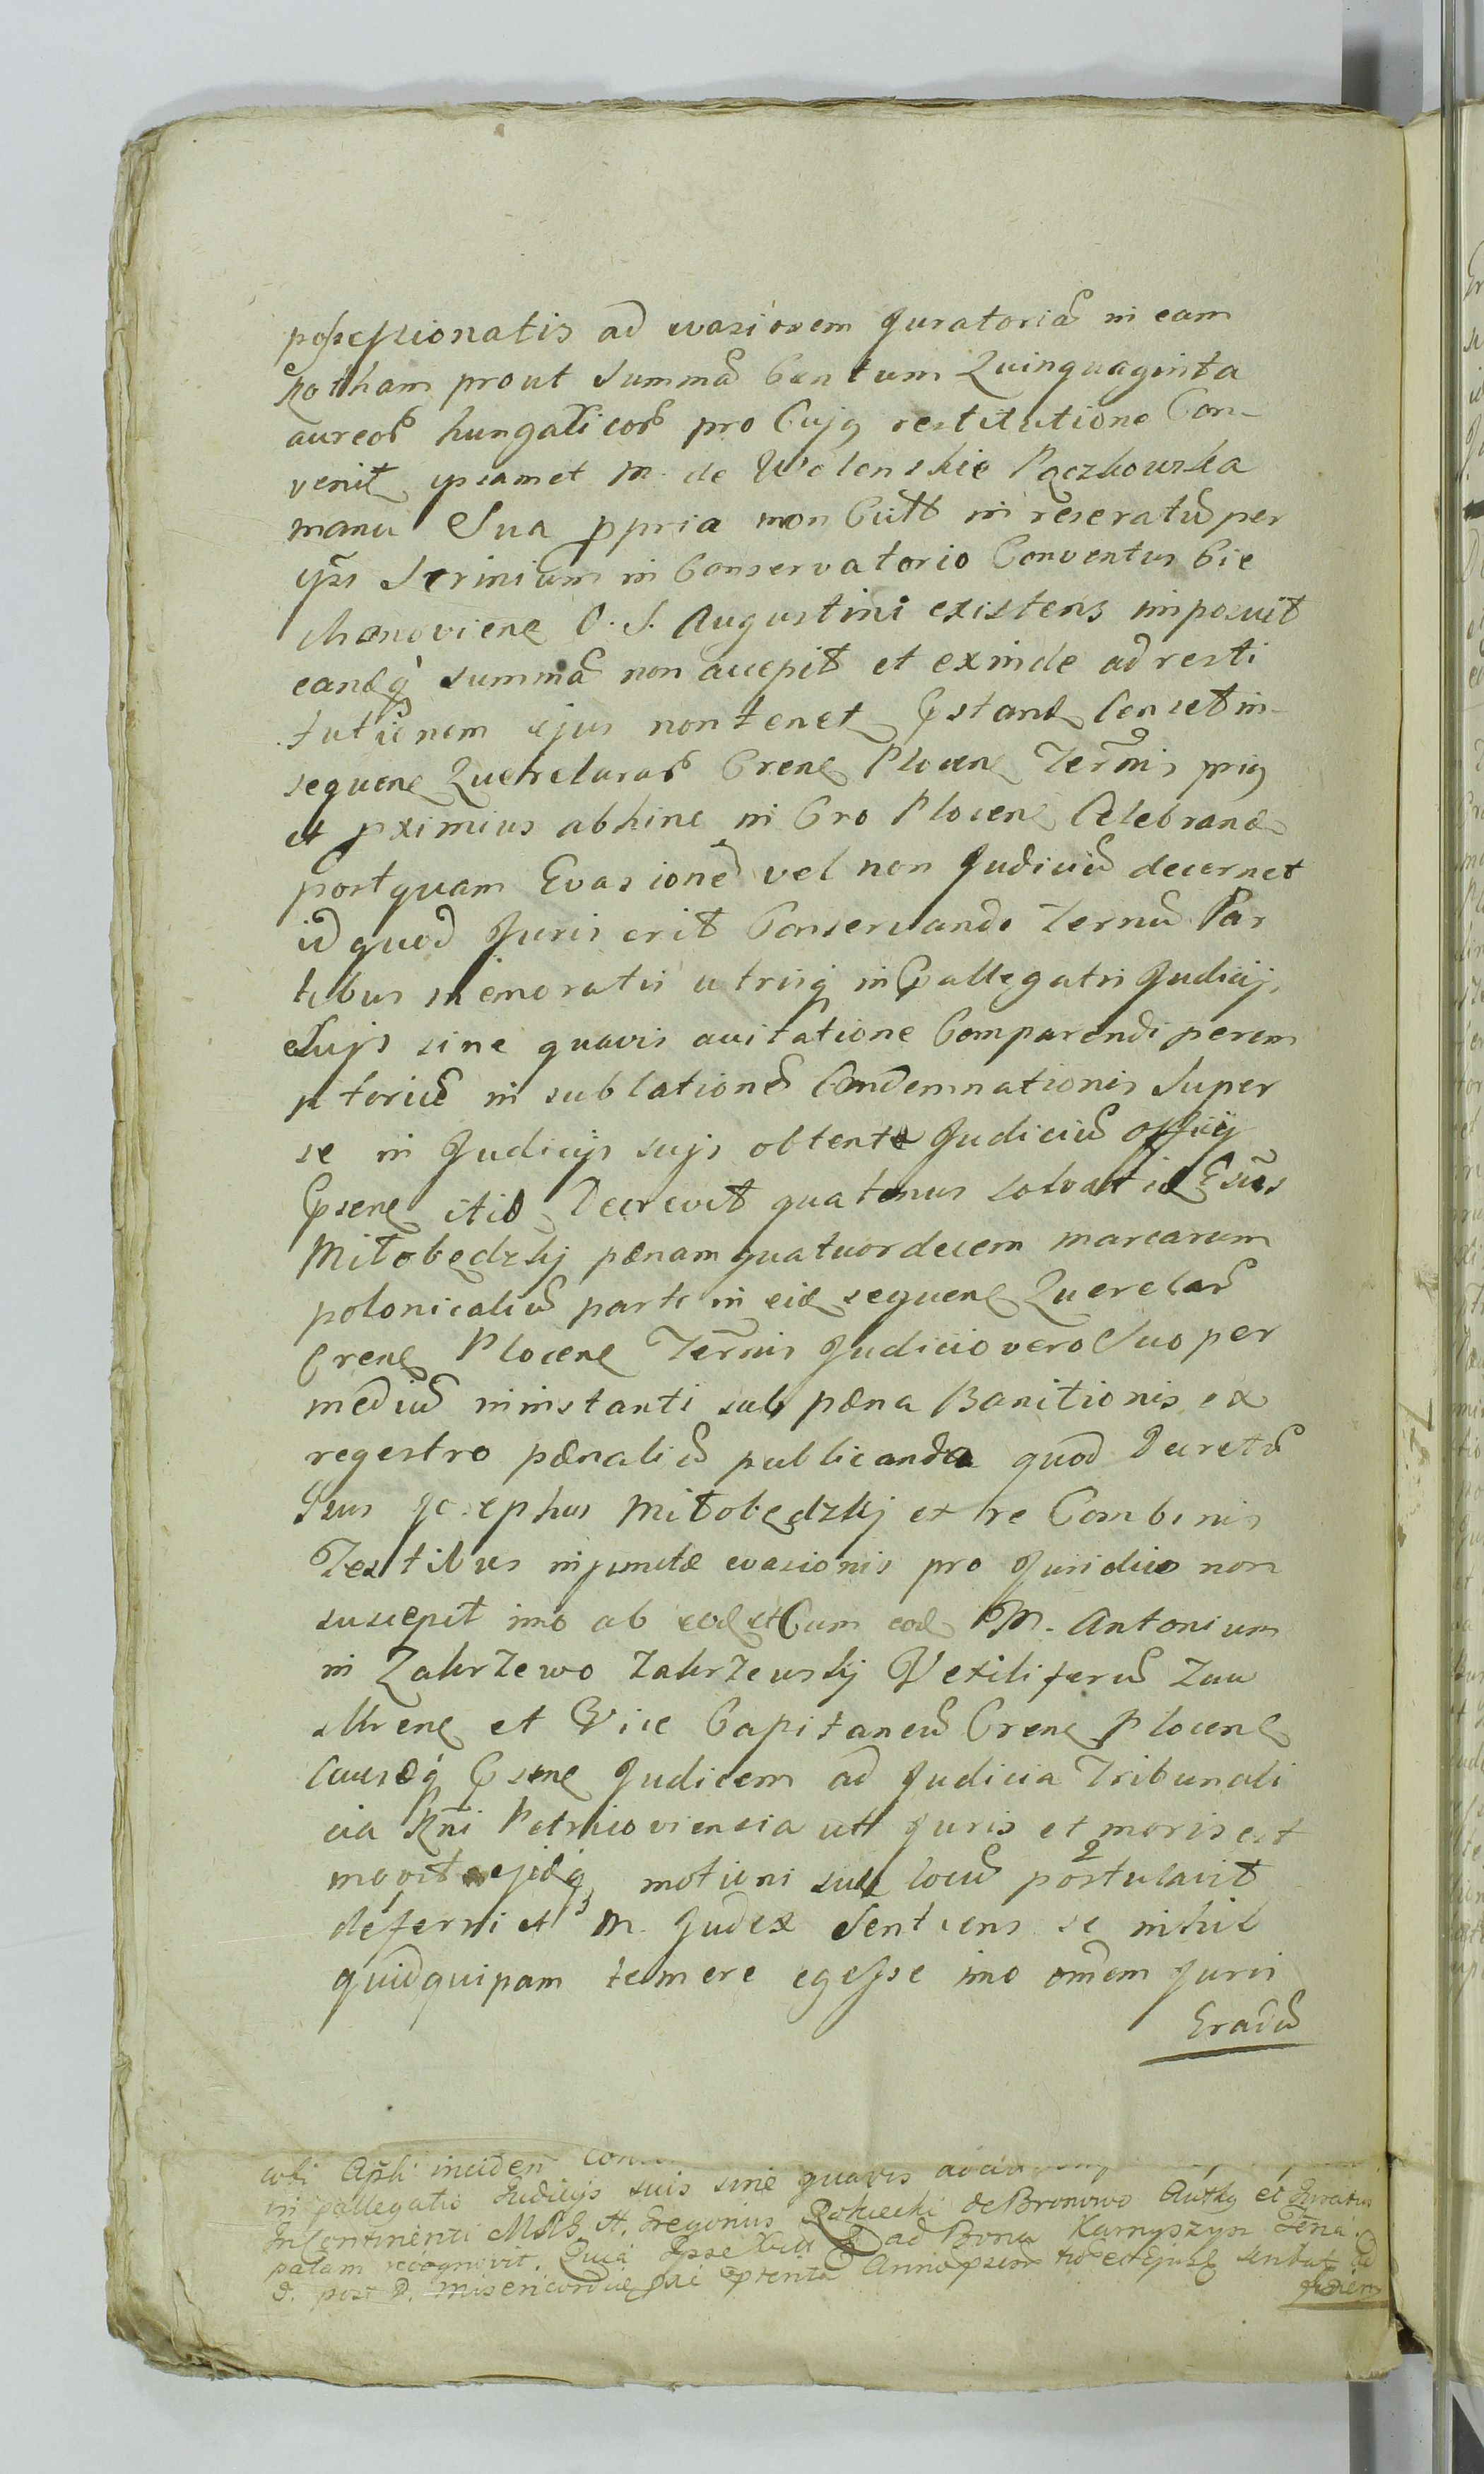 possessionatis ad evasionem Juratoriã in eam
Rotham prout Summã Centum Quinquaginta
aureoꝝ hungaricoꝝ pro Cujꝯ restitutione Con-
venit ipsamet M. de Wolenskie Pączkowska
manu Sua ppria non Cui in reseratũ per
ipẽs Scrinium in Conservatorio Conventus Cie
chanoviene O. S. Augustini existens imposuit
eandq́ summã non accepit et exinde ad resti
tutionem ejus non tenet Pstand Censet in
sequene Querelaraꝝ Crene Plocene Termĩs priꝯ
et pximius abhinc in Cro Plocene Celebrand
postquam Evasionẽ vel non Judiciũ decernet
id quod Juris erit Conservando Ternũ Par
tibus memoratis utrisq in Pallegatis Judicij,
Sujs sine quavis avitatione Comparendi perem
ptoriũ in sublationẽ Condemnationis Super
se in Judicijs sujs obtente Judiciũ officij
Psene itid Decrevit quatenus solvat id Gsũs
Miłobędzkj pænam quatuordecem marcarum
polonicaliũ parti in eid sequene Querelarũ
Crene Plocene Termĩs Judicio vero Suo per
mediũ in instanti sub pæna Banitionis ex
regestro pænaliũ publicanda quod Decretũ
Gsus Josephus Miłobędzkj et re Combinis
Testibus injunctæ evasionis pro Juridico non
suscepit imo ab eod et Cum eod M. Antonium
in Zakrzewo Zakrzewskj Vexiliferũ Zaw
skrene et Vice Capitaneũ Crene Plocene
Causæq́ Psene Judicem ad Judicia Tribunali
cia Rñi Petricoviensia utt Juris et moris est
movit ejdq motioni suæ locũ postulavit
deferri et M. Judex Sentiens se nihil
quidquipam temere egesse imo omẽm Juris
Gradũ
cobi Apli inciden Con
in pallegatis Judicijs suis sine quavis
Incontinenti MRS. H. Gregorius Rokicki de Bronowo Authꝯ et Juratus
palam recognovit. Quia Ipse ad Bona Karnyszyn
F. post D. Misericordiæ Anno